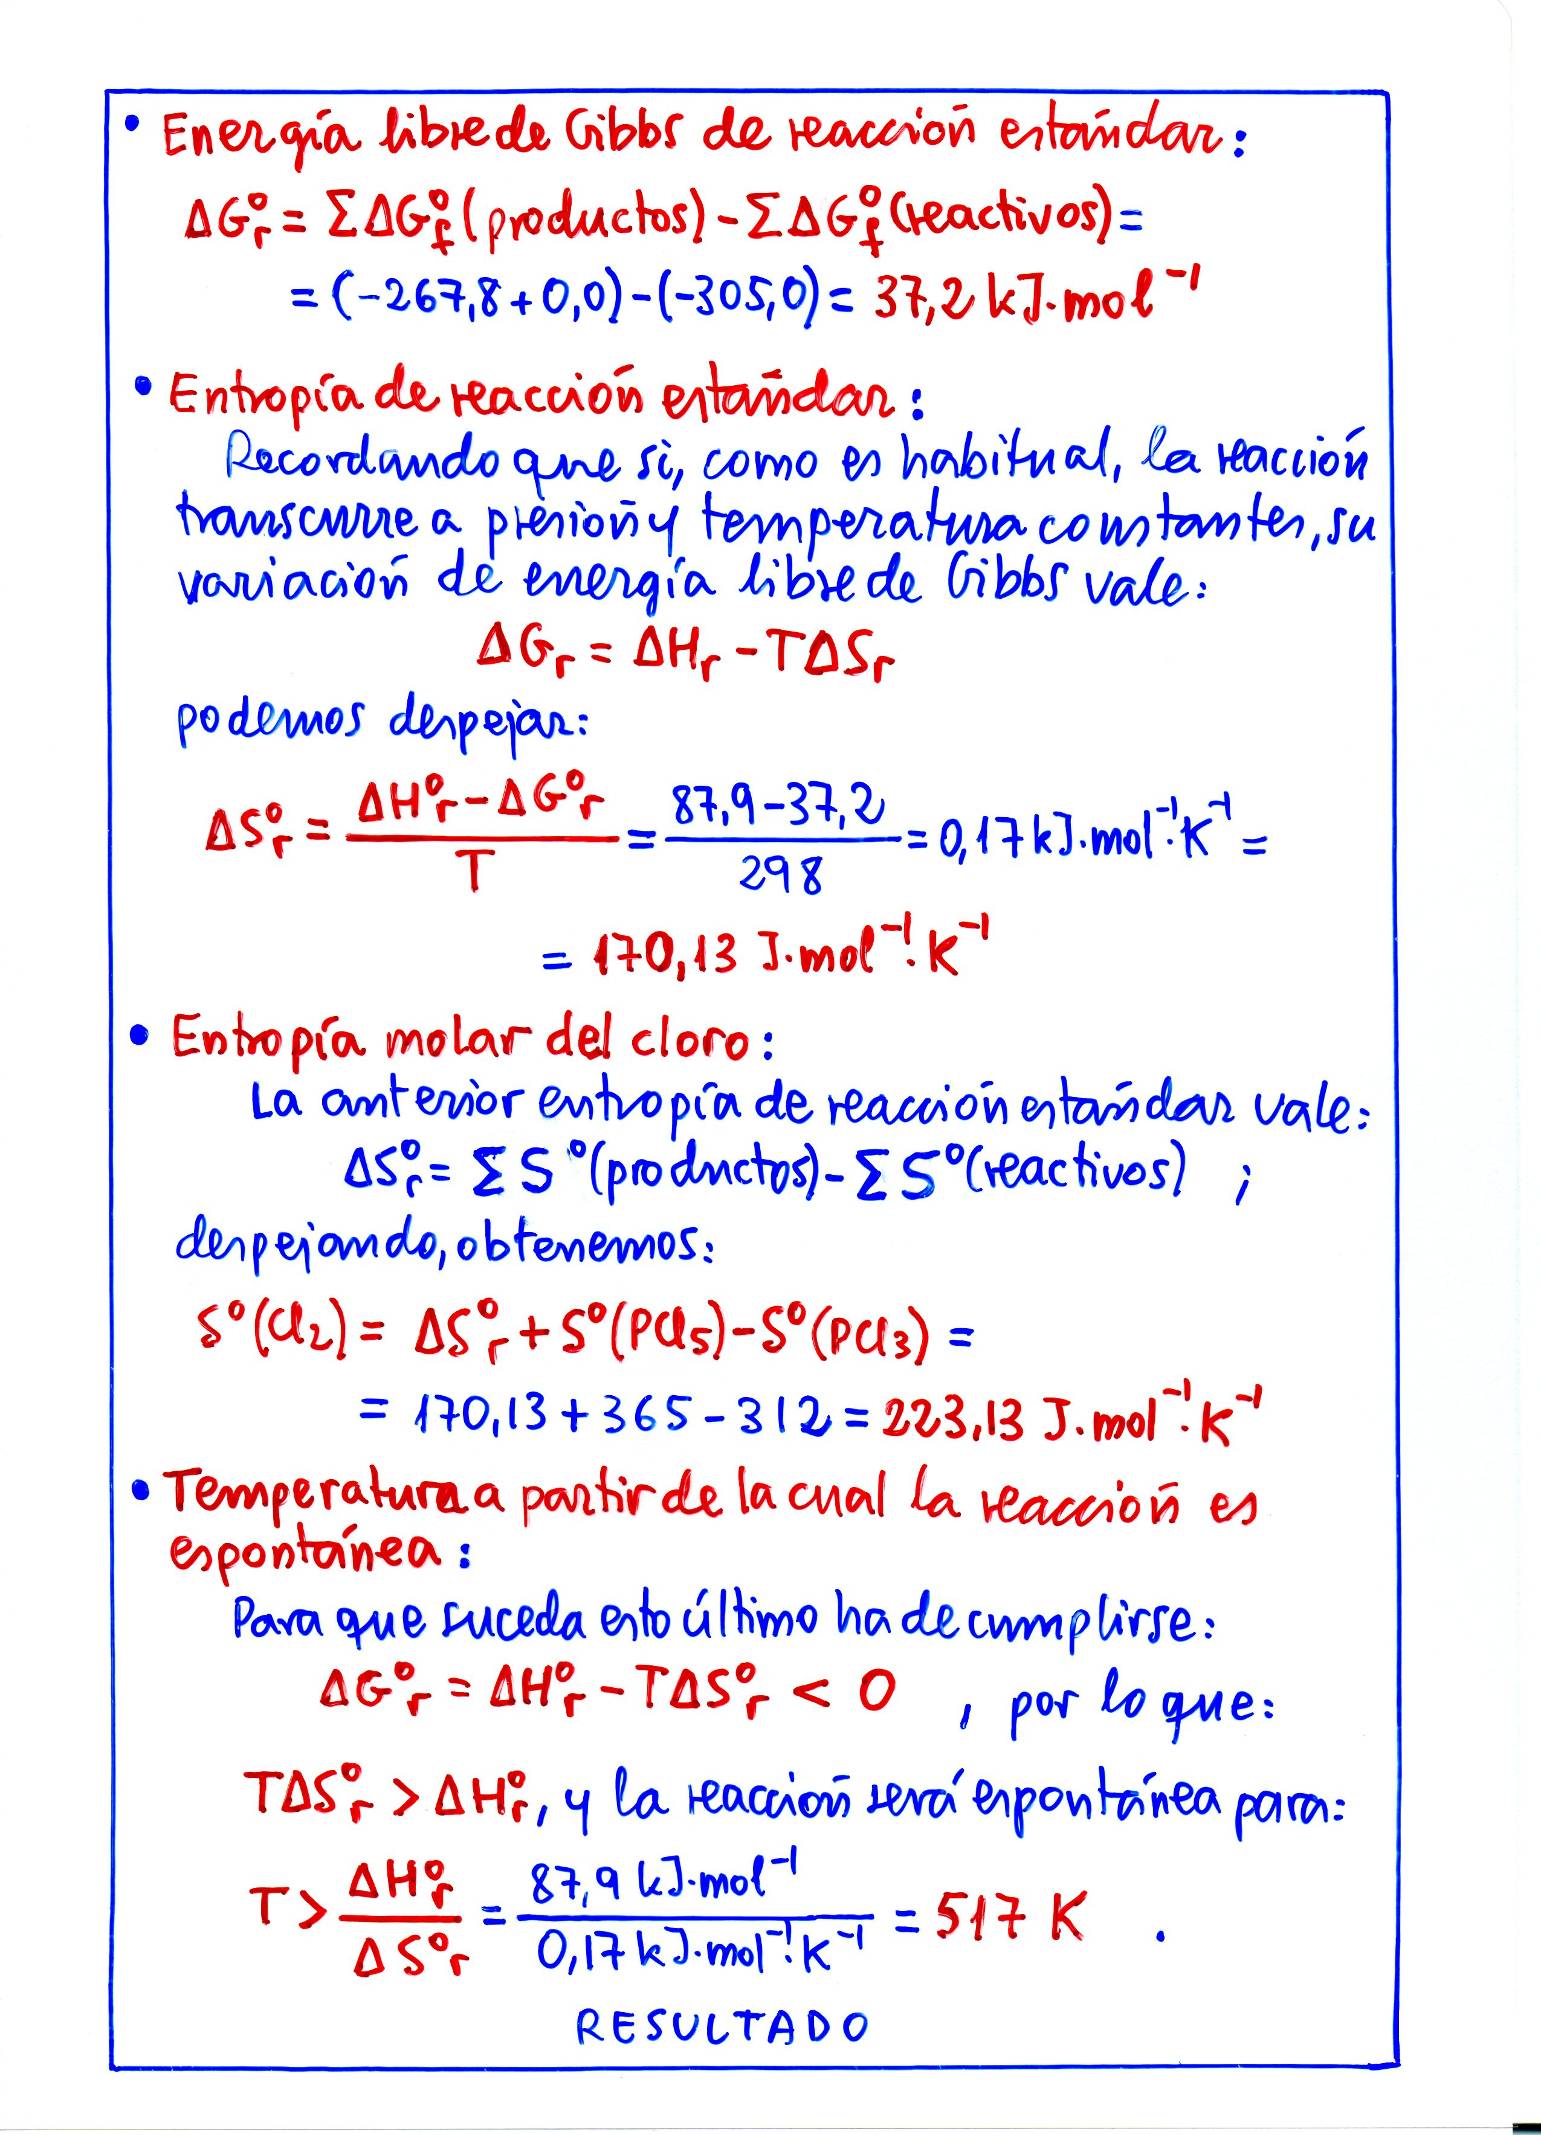 • Energía libre de Gibbs de reacción estándar:
ΔG°r = ΣΔG°f (productos) - ΣΔG°f (reactivos) =
= (-267,8 + 0,0) - (-305,0) = 37,2 kJ·mol⁻¹
• Entropía de reacción estándar:
Recordando que si, como es habitual, la reacción
transcurre a presión y temperatura constantes, su
variación de energía libre de Gibbs vale:
ΔGr = ΔHr - TΔSr
podemos despejar:
ΔS°r = (ΔH°r - ΔG°r)/T = (87,9 - 37,2)/298 = 0,17 kJ·mol⁻¹·K⁻¹ =
= 170,13 J·mol⁻¹·K⁻¹
• Entropía molar del cloro:
La anterior entropía de reacción estándar vale:
ΔS°r = ΣS°(productos) - ΣS°(reactivos) ;
despejando, obtenemos:
S°(Cl₂) = ΔS°r + S°(PCl₅) - S°(PCl₃) =
= 170,13 + 365 - 312 = 223,13 J·mol⁻¹·K⁻¹
• Temperatura a partir de la cual la reacción es
espontánea:
Para que suceda esto último ha de cumplirse:
ΔG°r = ΔH°r - TΔS°r < 0 , por lo que:
TΔS°r > ΔH°r, y la reacción será espontánea para:
T > ΔH°r/ΔS°r = 87,9 kJ·mol⁻¹/0,17 kJ·mol⁻¹·K⁻¹ = 517 K .
RESULTADO